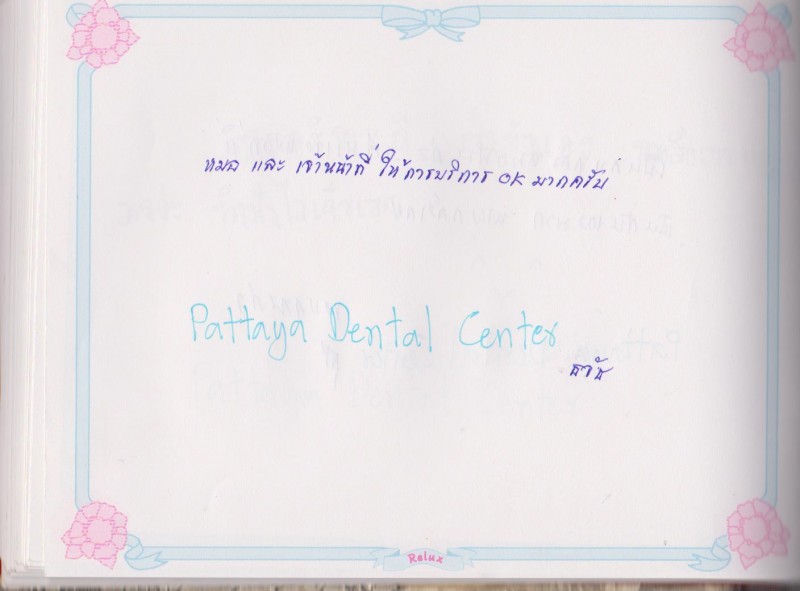 หมอ และ เจ้าหน้าที่ ให้การบริการ OK มากครับ
Pattaya Dental Center
ธวัช
Relux